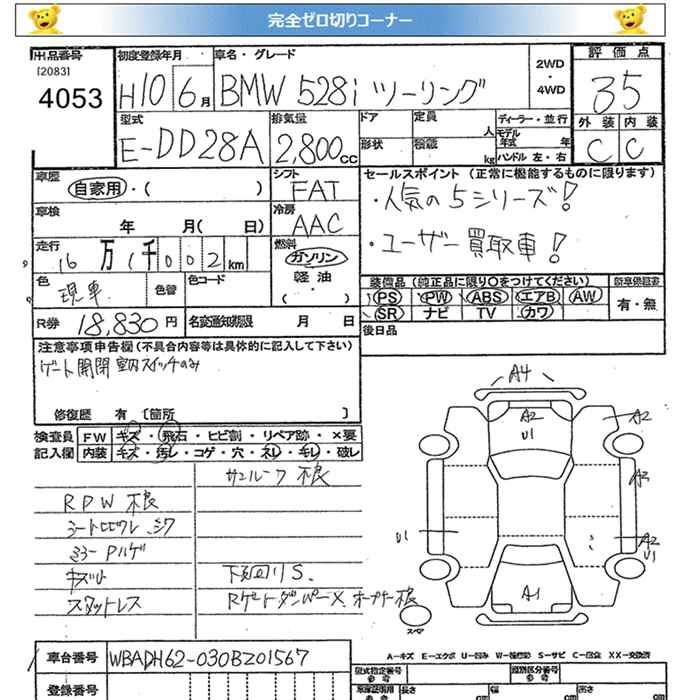 完全ゼロ切りコーナー
出品番号
[2083]
4053
初度登録年月
H10 6月
車名・グレード
BMW 528i ツーリング
2WD
・
4WD
評価点
3.5
外装 内装
C C
型式
E-DD28A
排気量
2,800cc
ドア
形状
定員
人
積載
kg
ディーラー・並行
モデル
年式 年
ハンドル 左・右
車歴
自家用・( )
シフト
FAT
車検
年 月( 日)
冷房
AAC
走行
16万1千002km
燃料
ガソリン
軽油
( )
色
現車
色替
色コード
R券 18,830円
名変通知期限 月 日
セールスポイント (正常に機能するものに限ります)
・人気の5シリーズ!
・ユーザー買取車!
装備品 (純正品に限り○をつけてください)
PS PW ABS エアB AW
SR ナビ TV カワ
有・無
後日品
注意事項申告欄 (不具合内容等は具体的に記入して下さい)
ゲート開閉 室内スイッチのみ
修復歴 有 [箇所 ]
検査員
記入欄
FW キズ・飛石・ヒビ割・リペア跡・×要
内装 キズ・汚レ・コゲ・穴・ネレ・キレ・破レ
サンルーフ 不良
RPW 不良
シートヒビワレ シワ
ミラーPハゲ
キズ小
下廻りS.
スタットレス
RゲートダンパーX. オープナー不良
A4
A2
U1
A2
A3
A2
U1
U1
A1
スペア
A=キズ E=エクボ U=凹み W=補修跡 S=サビ C=腐食 XX=交換済
車台番号 WBADH62-030BZ01567
登録番号
型式指定番号
参考
類別区分番号
参考
長さ cm
幅 cm
高さ cm